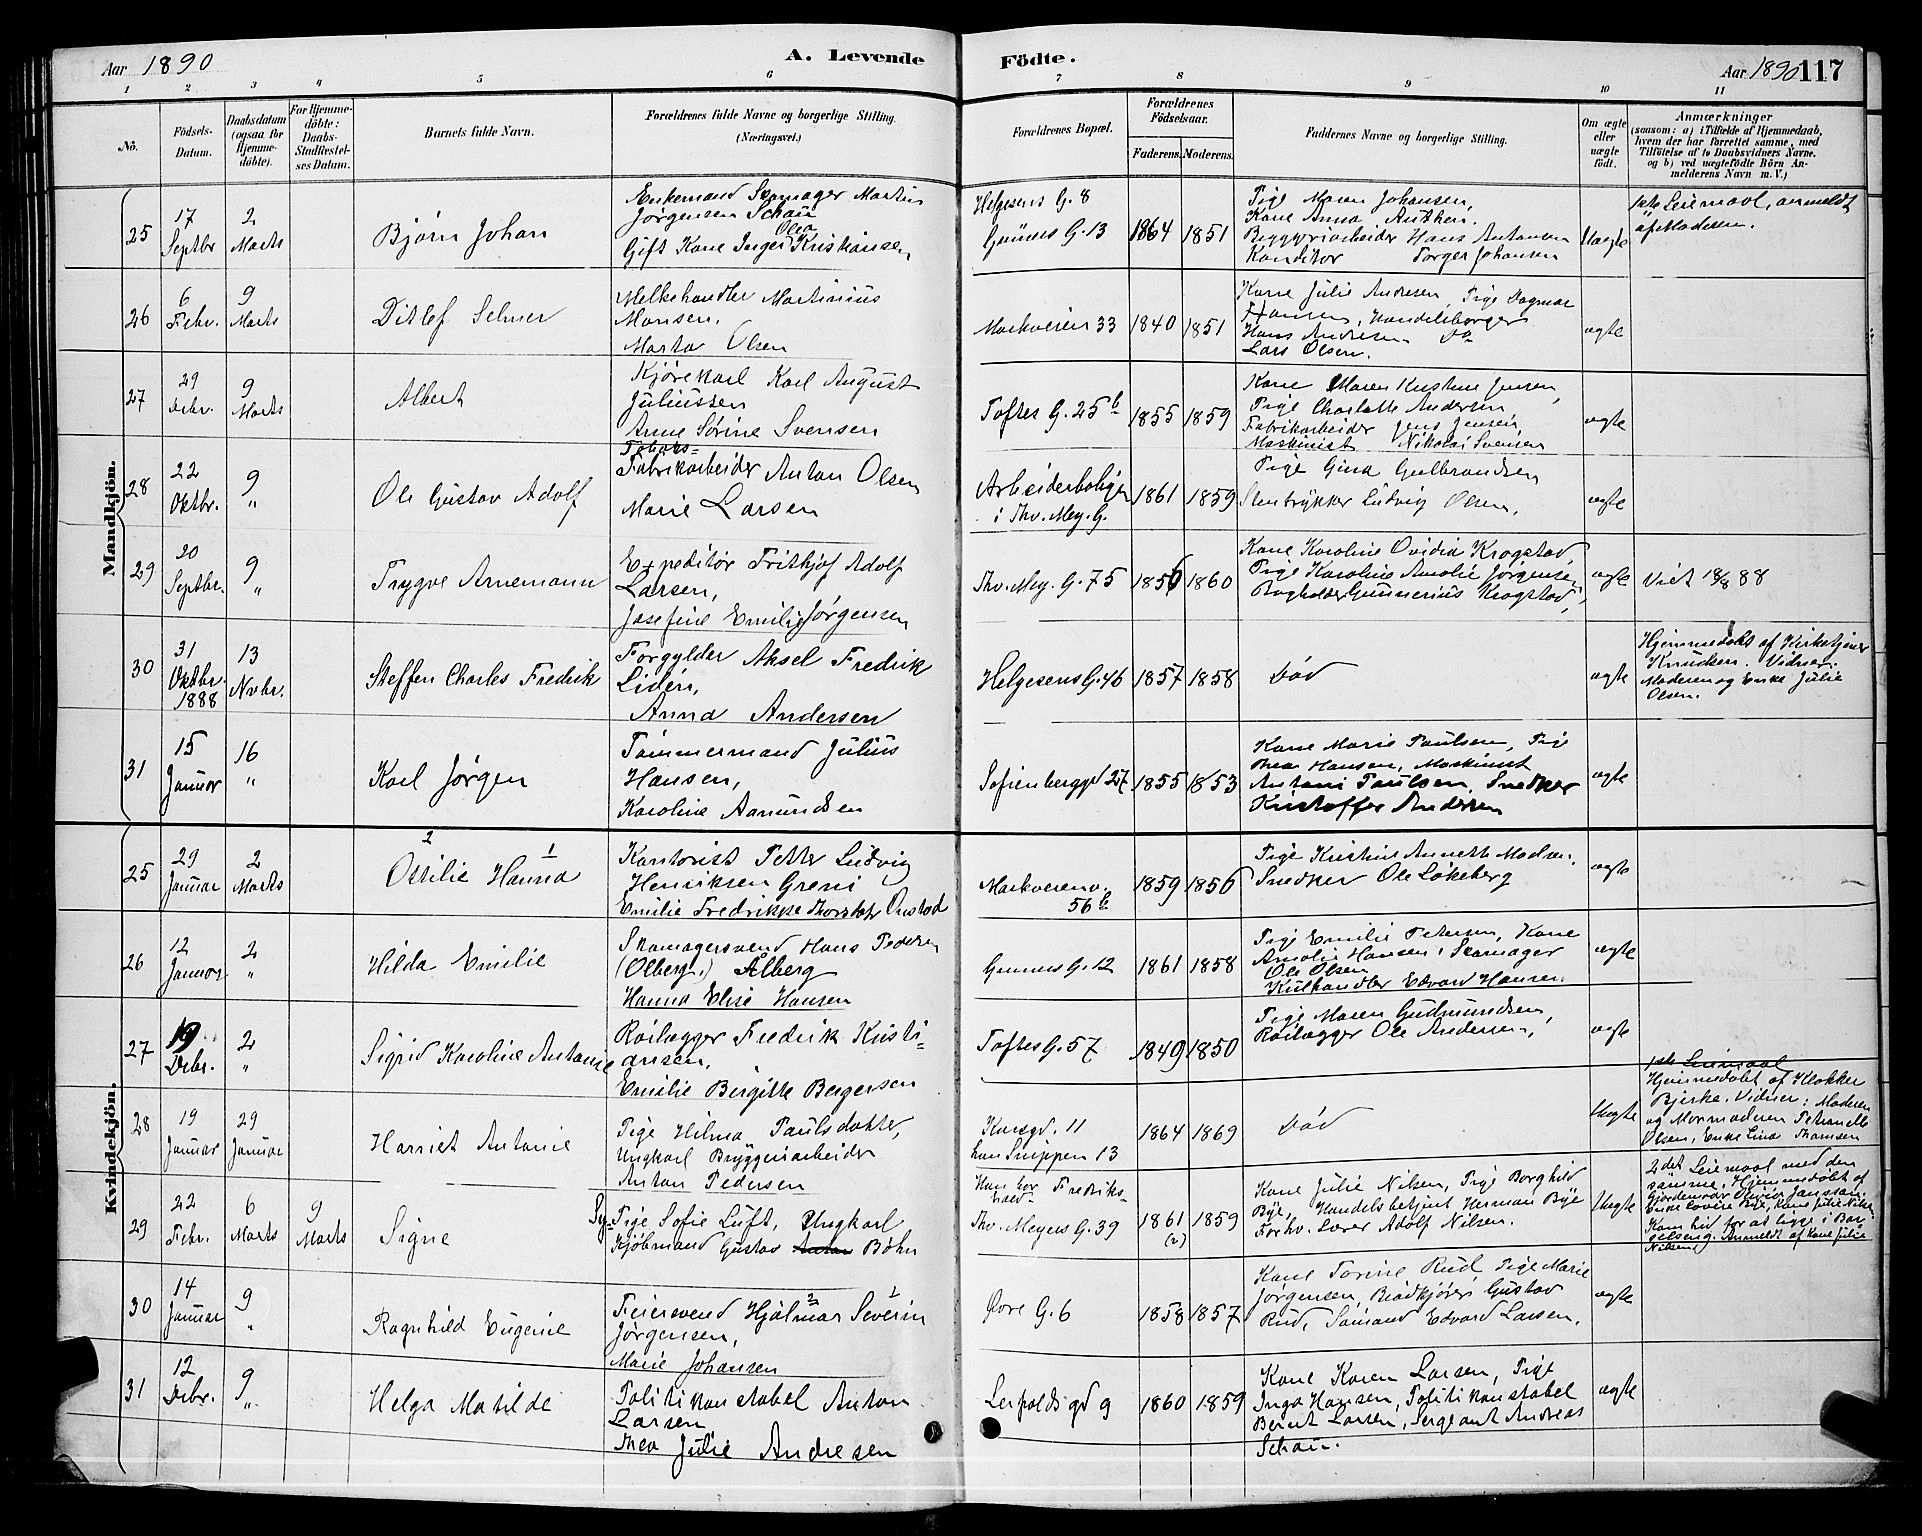 Aar 1890
A. Levende
Födte.
Aar 1890 117
1 2 3 4 5 6 7 8 9 10 11
No.
Födsels-
Datum.
Daabsdatum
(ogsaa for
Hjemme-
döbte).
For Hjemme-
döbte:
Daabs-
Stadfæstel-
ses Datum.
Barnets fulde Navn.
Forældrenes fulde Navne og borgerlige Stilling.
(Næringsvei.)
Forældrenes Bopæl.
Forældrenes
Födselsaar.
Faderens. Moderens.
Faddernes Navne og borgerlige Stilling.
Om ægte
eller
uægte
födt.
Anmærkninger
(saasom: a) i Tilfælde af Hjemmedaab,
hvem der har forrettet samme, med
Tilföielse af to Daabsvidners Navne,
og b) ved uægtefödte Börn An-
melderens Navn m. V.)
Mandkjön.
25
17
Septbr
2
Marts
Bjørn Johan
Enkemand Skomager Martin
Jørgensen Schau
Olea
Gift Kone Inger Kristiansen
Helgesens G. 8
Grüners G. 13
1864 1851
Pige Maren Johansen,
Kone Anna Antksen.
Bryggeriarbeider Hans Antonsen
Konditor Torger Johansen
Uægte
1ste Leiermaal, anmeldt
af Moderen.
26
6
Febr.
9
Marts
Ditlef Selmer
Melkehandler Martinius
Monsen,
Marta Olsen
Markveien 33
1840 1851
Kone Julie Andresen, Pige Dagmar
Hansen, Handelsborger
Hans Andresen Do
Lars Olsen.
ægte
27
29
Decbr.
9
Marts
Albert
Kjørekarl Karl August
Juliussen
Anne Sørine Svensen
Toftes G. 25 b
1855 1859
Kone Maren Kristine Jensen,
Pige Charlotte Andersen,
Fabrikarbeider Jens Jensen,
Maskinist Nikolai Svensen
ægte
28
22
Oktbr.
9
"
Ole Gustav Adolf
Tobaks=
Fabrikarbeider Anton Olsen
Marie Larsen
Arbeiderboligen
i Thv. Mey. G.
1861 1859
Pige Gina Gulbrandsen
Stentrykker Ludvig Olsen,
ægte
29
20
Septbr.
9
"
Trygve Arnemann
Expeditør Frithjof Adolf
Larsen,
Josefine Emilie Jørgensen
Thv. Mey. G. 75
1856 1860
Kone Karoline Ovidia Krogstad,
Pige Karoline Amalie Jørgensen,
Bogholder Gunnerius Krogstad,
ægte
Viet 18/8 88
30
31
Oktbr.
1888
13
Nvbr.
Steffen Charles Fredrik
Forgylder Aksel Fredrik
Lidén,
Anna Andersen
Helgesens G. 46
1857 1858
Død
ægte
Hjemmedøbt af Kirketjener
Knudsen. Vidner:
Moderen og Enke Julie
Olsen.
31
15
Januar
16
"
Karl Jørgen
Tømmermand Julius
Hansen,
Karoline Aamundsen
Sofienberggd 27
1855 1853
Kone Marie Paulsen, Pige
Thea Hansen, Maskinist
Antoni Paulsen, Snedker
Kristoffer Andersen
ægte
Kvindekjön.
25
29
Januar
2
Marts
2 1
Ottilie Hanna
Kontorist Petter Ludvig
Henriksen Greni
Emilie Fredrikke Onstad
Markveien
56 b
1859 1856
Pige Kristine Annette Madsen.
Snedker Ole Løkeberg
ægte
26
12
Januar
2
"
Hilda Emilie
Skomagersvend Hans Pedersen
(Olberg.) Ålberg
Hanna Elise Hansen
Grüners G. 12
1861 1858
Pige Emilie Petersen, Kone
Amalie Hansen, Skomager
Ole Olsen
Kulhandler Edvard Hansen.
ægte
27
19
Decbr.
2
"
Sigrid Karoline Antonie
Rørlægger Fredrik Kristi=
ansen,
Emilie Birgitte Bergersen
Toftes G. 57
1849 1850
Pige Maren Gudmundsen,
Rørlægger Ole Andersen,
ægte
28
19
Januar
29
Januar
Harriet Antonie
Pige Hilma Paulsdatter,
Ungkarl Bryggeriarbeider
Anton Pedersen
Korsgd. 11
han Snippen 13
1864 1869
Død
Uægte
1ste Leiermaal
Hjemmedøbt af Klokker
Bjerke. Vidner: Moderen
og Mormoderen Petronelle
Olsen, Enke Lina Thomsen
29
22
Febr.
6
Marts
9
Marts
Signe
Sy=Pige Sofie Luft, Ungkarl
Kjøbmand Gustav Anton Bøhn
Han bor Fredriks-
hald.
Thv. Meyers G. 39
1861
(2)
1859
Kone Julie Nilsen, Pige Borghild
Bye, Handelsbetjent Herman Bye
Forhv. Lærer Adolf Nilsen.
Uægte
2det Leiermaal med den
samme. Hjemmedøbt af
Gjordemoder Olivia Janssen.
Enke Lovise Bye, Kone Julie Nilsen
Kom hid for at ligge i Bar
selseng. Anmeldt af Kone Julie
Nilsen
30
14
Januar
9
"
Ragnhild Eugenie
2 1
Feiersvend Hjalmar Severin
Jørgensen,
Marie Johansen
Øvre G. 6
1858 1857
Kone Torine Rud, Pige Marie
Jørgensen, Brødkjører Gustav
Rud, Sømand Edvard Larsen.
ægte
31
12
Decbr.
9
"
Helga Matilde
Politikonstabel Anton
Larsen
Thea Julie Andresen
Leirfaldsgd 9
1860 1859
Kone Karen Larsen, Pige
Inga Hansen, Politikonstabel
Bernt Larsen, Sergeant Andreas
Schau.
ægte